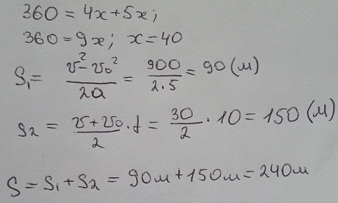 360 = 4x + 5x;
360 = 9x; x = 40
S₁ = (v² - v₀²)/2a = 900/(2·5) = 90 (м)
S₂ = (v + v₀)/2 · t = 30/2 · 10 = 150 (м)
S = S₁ + S₂ = 90м + 150м = 240м